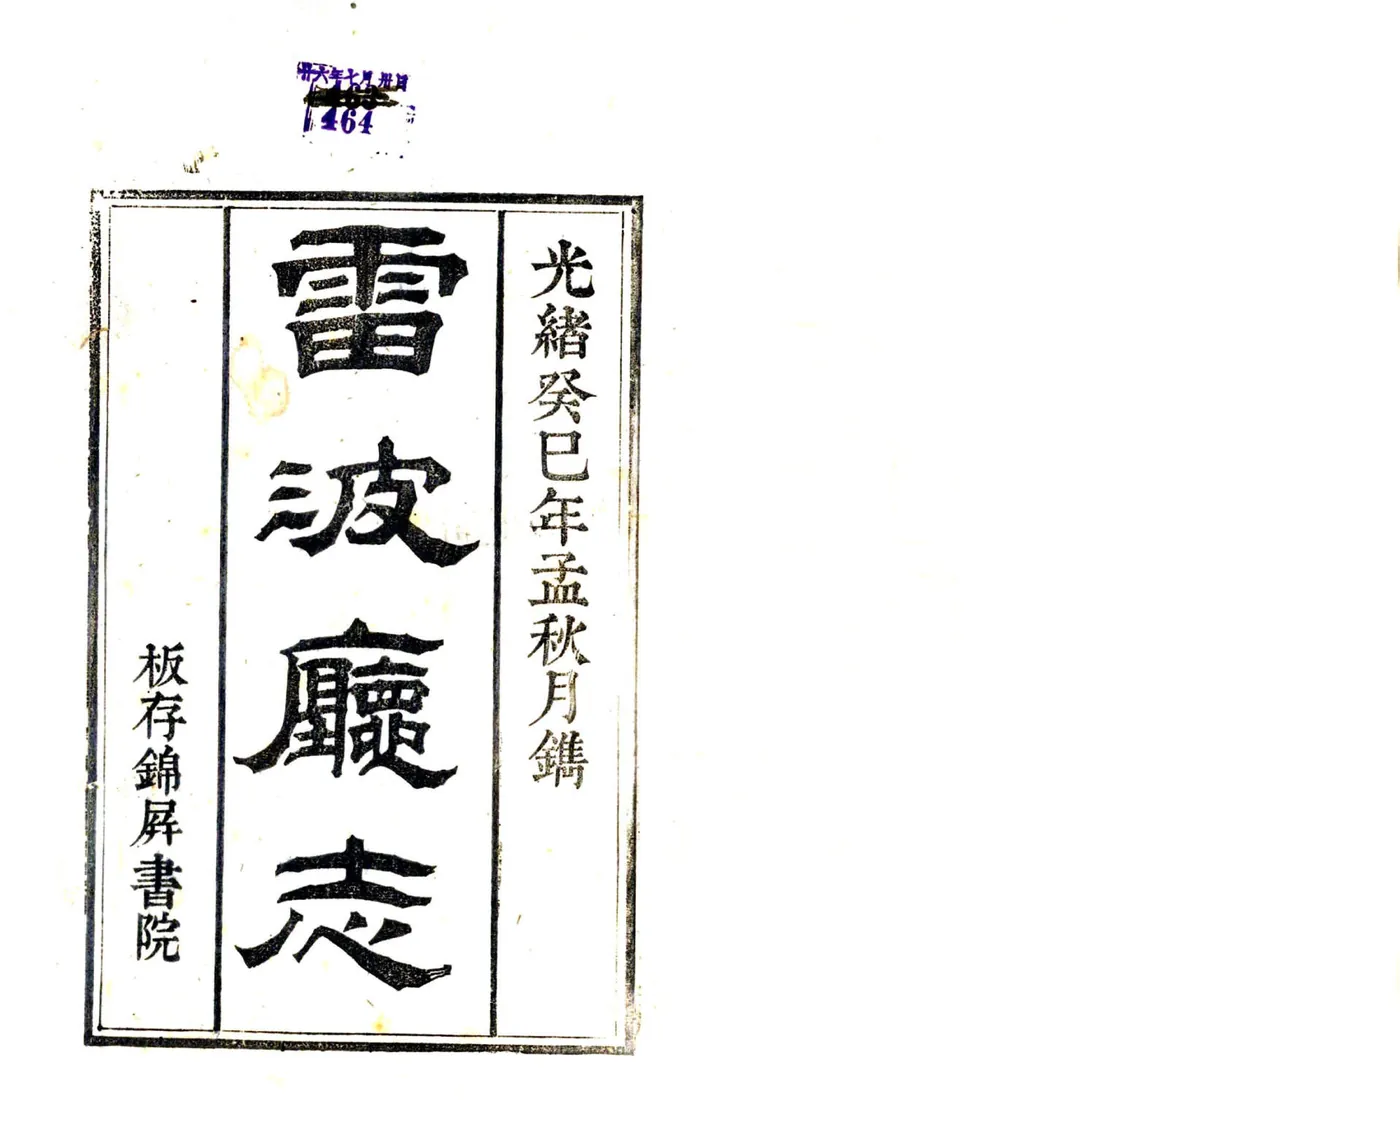 廿六年七月卅日
464
光緒癸巳年孟秋月鐫
雷波廳志
板存錦屏書院